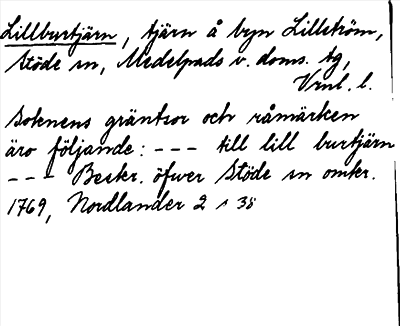 Lillburtjärn, tjärn å byn Lillström,
Stöde sn, Medelpads v. doms. tg,
Vrnl. l.
Soknens gräntsor och råmärken
äro följande: --- till lill burtjärn
--- Beskr. öfver Stöde sn omkr.
1769, Nordlander 2 s 38